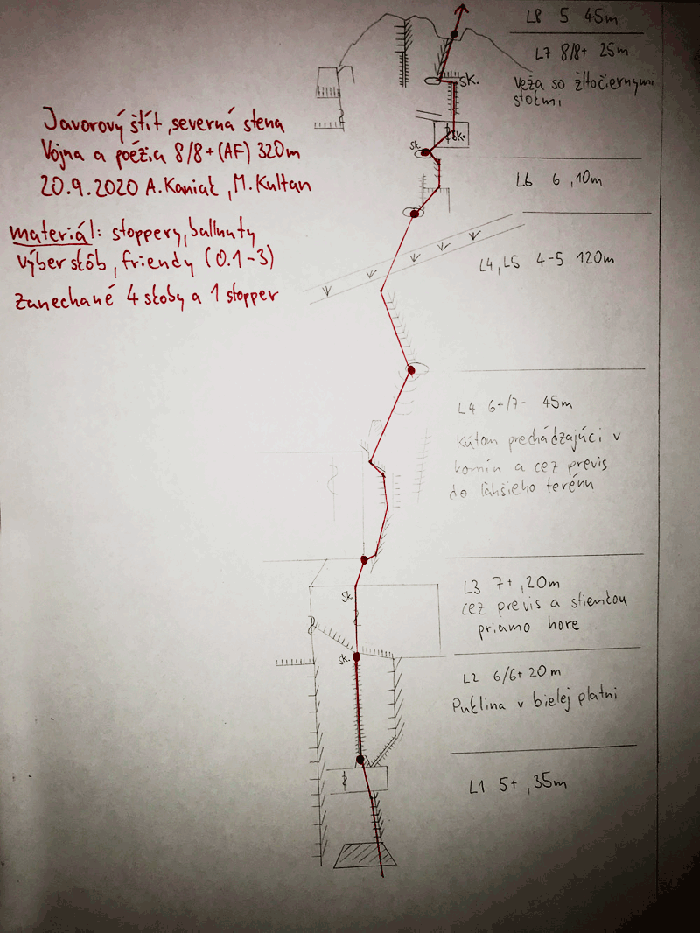 L8 5 45m
L7 8/8+ 25m
Veža so žltočiernymi
stĺpmi
sk.
Javorový štít, severná stena
Vojna a poézia 8/8+ (AF) 320m
20.9.2020 A. Kaniak, M. Kultan
sk.
st.
L6 6, 10m
materiál: stoppery, ballnuty
výber skôb, friendy (0.1-3)
zanechané 4 skoby a 1 stopper
L4, L5 4-5 120m
L4 6-/7- 45m
kútom prechádzajúci v
komín a cez previs
do ľahšieho terénu
L3 7+, 20m
cez previs a stienkou
priamo hore
sk.
sk.
L2 6/6+ 20m
Puklina v bielej platni
L1 5+, 35m